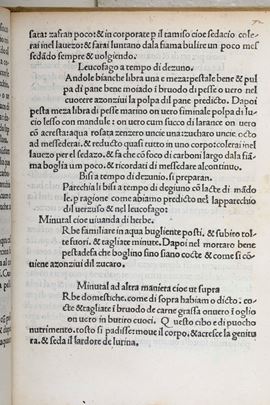 sata: zafran poco: & in corporate p il tamiso cioe sedacio cole
rai nel lauezo: & farai luntano dala fiama bulire un poco mes
sedãdo sempre & uolgiendo.
Leucofago a tempo di dezuno.
Andole bianche libra una e meza: pestale bene & pul
pa di pane bene moiado ĩ bruodo di pesse o uero nel
cuotere azonziui la polpa dil pane predicto. Dapoi
pesta meza libra di pesse marino on uero siminale polpa di lu
cio lesso con mandule: on uero cum succo di larance on uero
cõ acresta: aqua rosata zenzero uncie una: zucharo uncie octo
ad messederai. & reducto quasi tutto in uno corpo: colerai inel
lauezo per il sedazo. & fa che cõ foco di carboni largo dala fiã
ma boglia um poco. & ricordati di messedare alcontinuo.
Bisi a tempo di dezunio. si preparan.
Parechia li bisi a tempo di degiuno cõ la lacte di mãdo
le. p ragione como abiamo predicto nel lapparechio
dil uerzuso & del leucofago:
Minutal cioe uiuanda di herbe.
Rbe familiare in aqua bugliente posti. & subito tol
te fuori. & tagliare minute. Dapoi nel mortaro bene
pestade fa che boglino fino siano cocte & come si cõ
uiene azonzoui dil zucaro.
Minutal ad altra maniera cioe ut supra
Rbe domestiche. come di sopra habiam o dicto. coc
te & tagliate ĩ bruodo de carne grassa onuero ĩ oglio
on uero in butiro cuoci. Questo cibo e di puocho
nutrimento. tosto si padisse: moue il corpo. & acresce la genitu
ra. & seda il lardore de lurina.